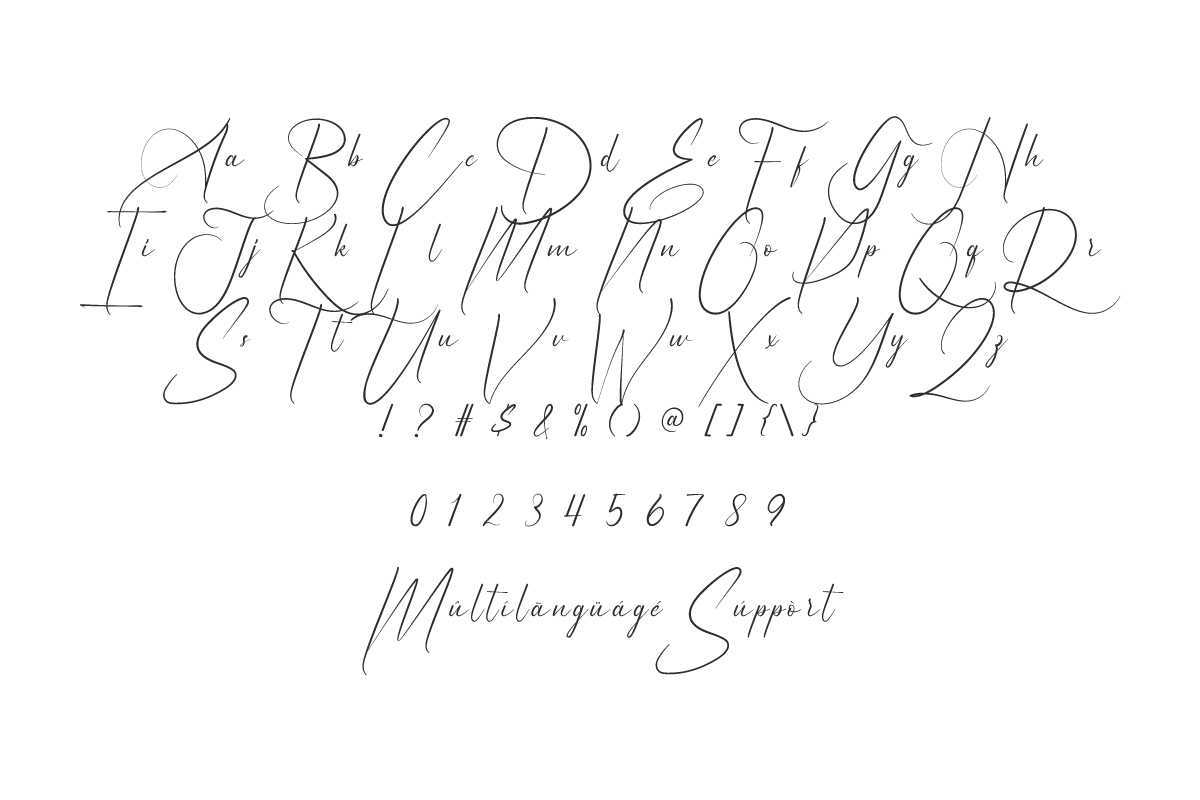 Aa Bb Cc Dd Ee Ff Gg Hh
Ii Jj Kk Ll Mm Nn Oo Pp Qq Rr
Ss Tt Uu Vv Ww Xx Yy Zz
! ? # $ & % ( ) @ [ ] { \ }
0 1 2 3 4 5 6 7 8 9
Múltílängüágé Súppòrt